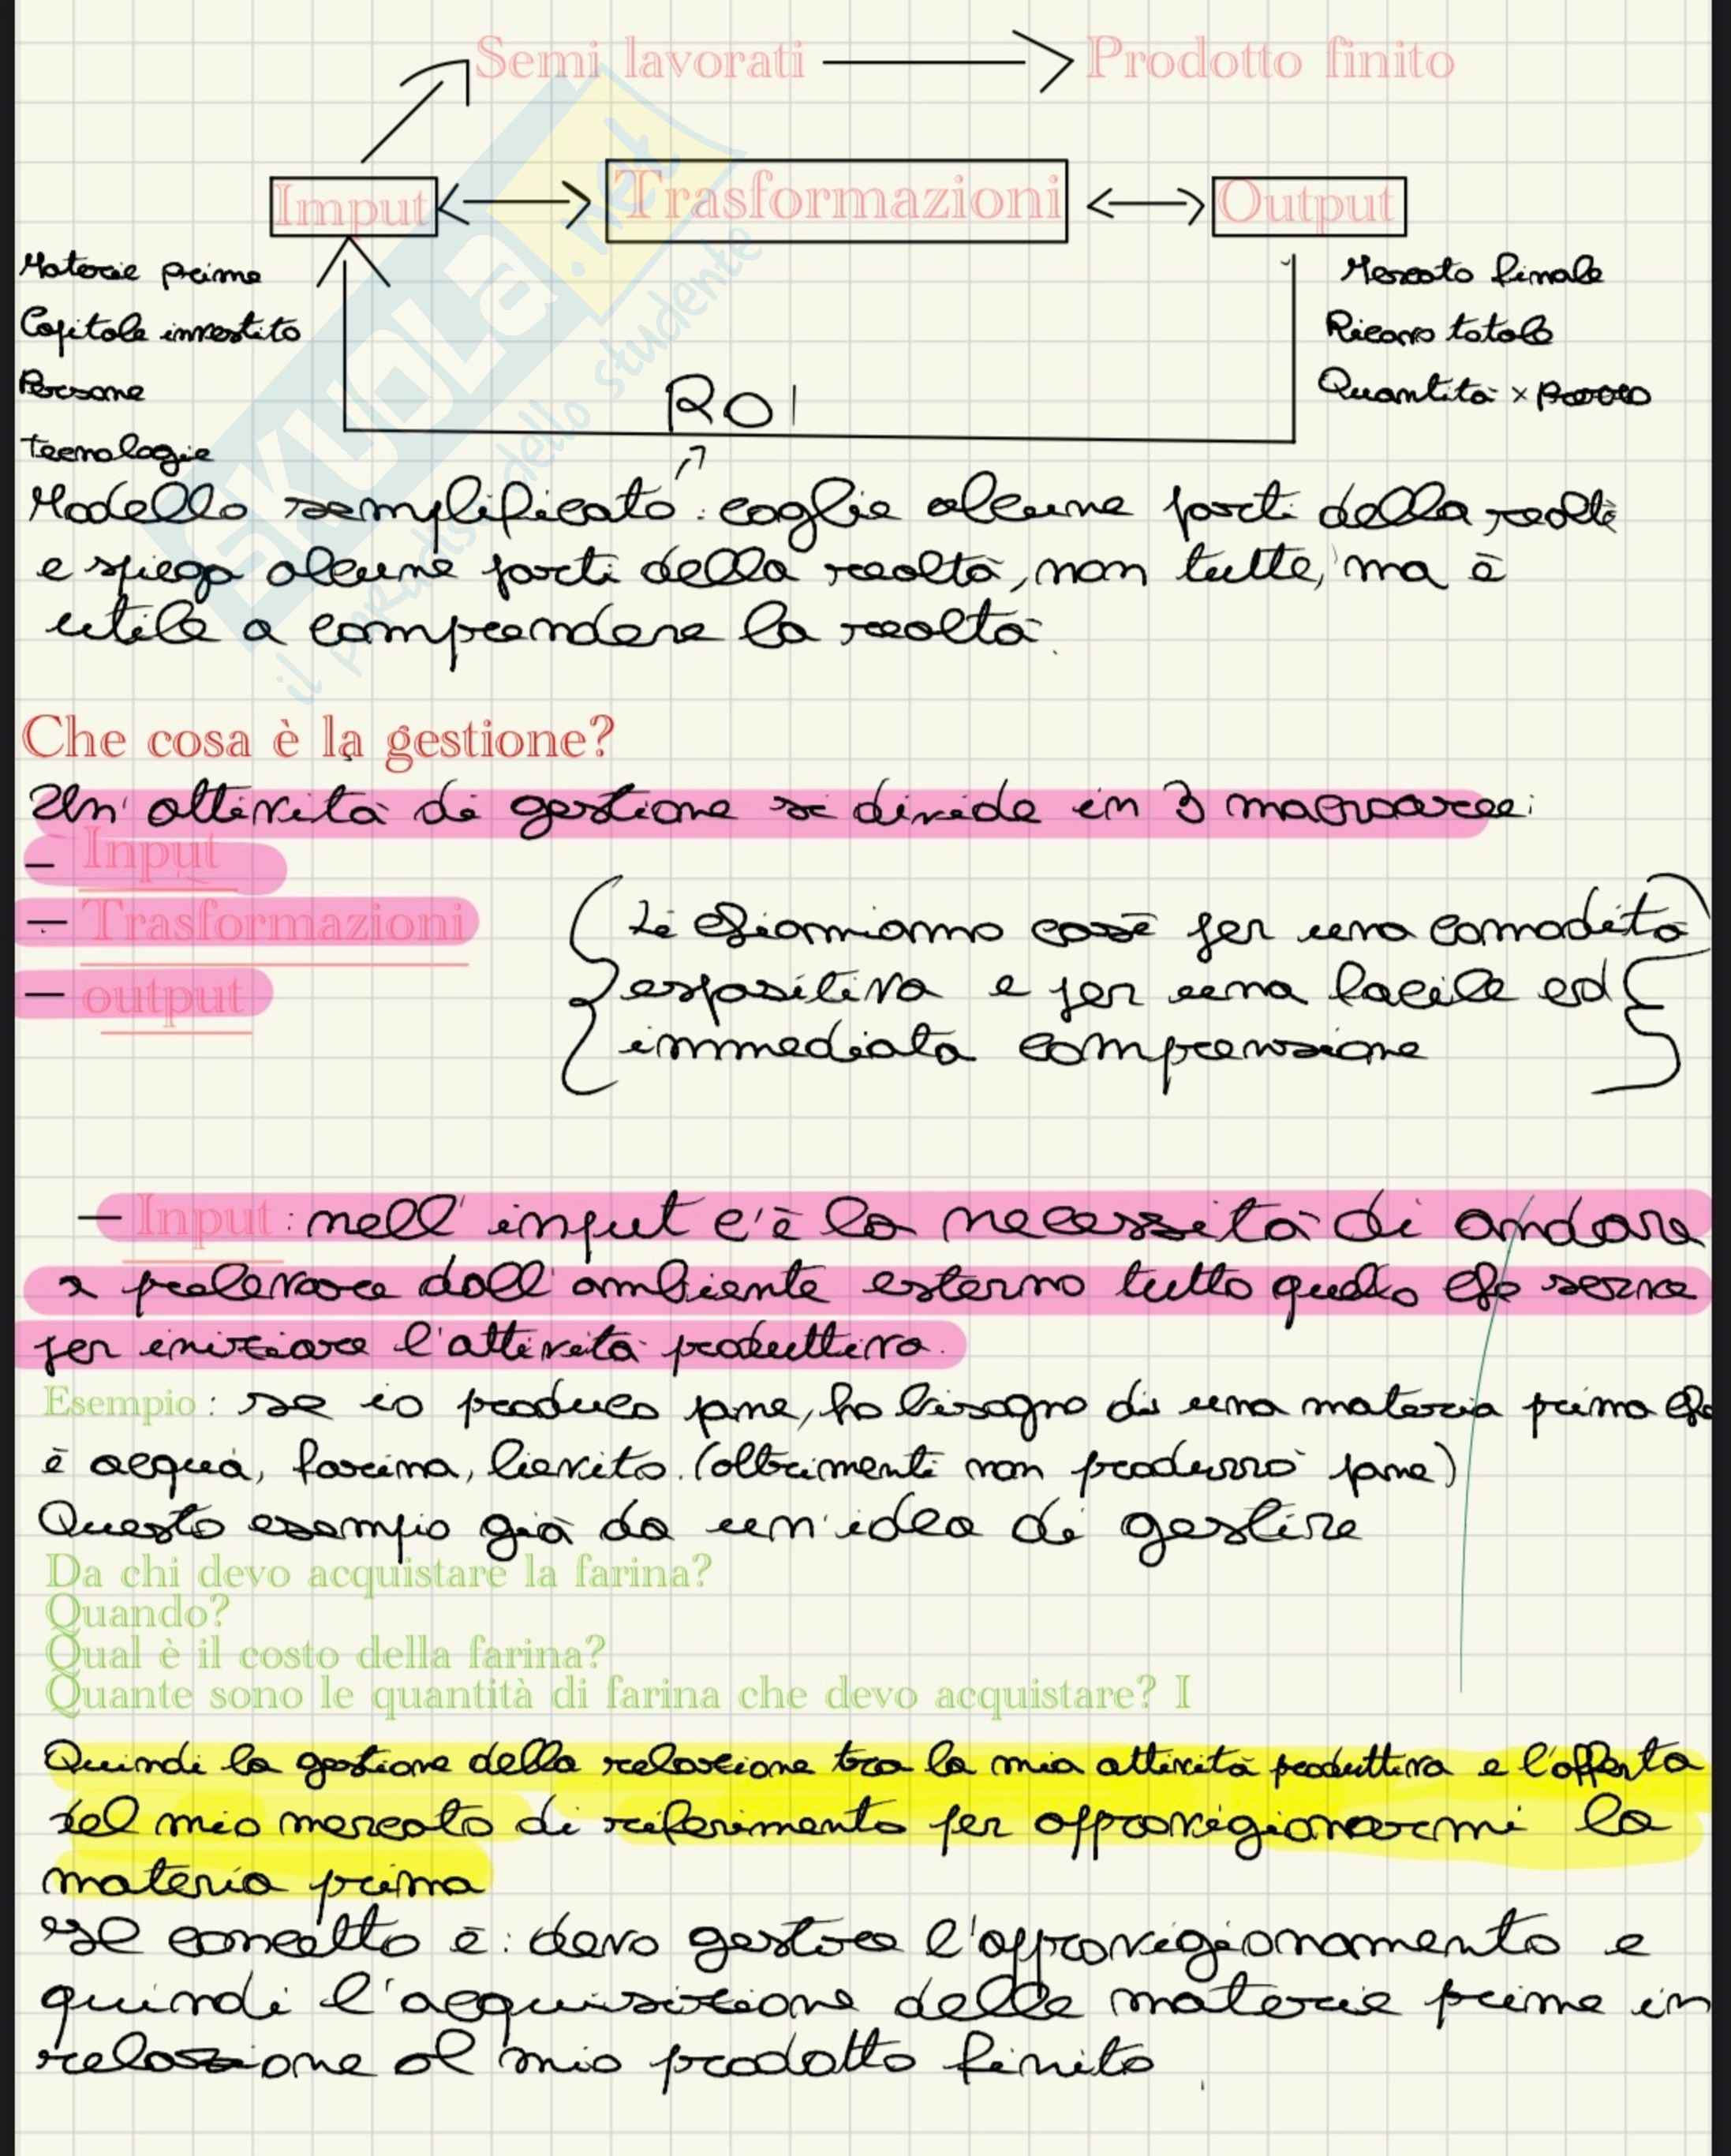 Semi lavorati Prodotto finito
Imput Trasformazioni Output
Materie prime
Capitale investito
Persone
Tecnologie
Mercato finale
Ricavo totale
Quantità x prezzo
ROI
Modello semplificato: coglie alcune parti della realtà
e spiega alcune parti della realtà, non tutte, ma è
utile a comprendere la realtà.
SKUOLA.net
il paradiso dello studente
Che cosa è la gestione?
Un'attività di gestione si divide in 3 macroaree:
- Input
- Trasformazioni
- output
Li chiamiamo così per una comodità
espositiva e per una facile ed
immediata comprensione
- Input: nell'input c'è la necessità di andare
a prelevare dall'ambiente esterno tutto quello che serve
per iniziare l'attività produttiva.
Esempio: se io produco pane, ho bisogno di una materia prima che
è acqua, farina, lievito. (altrimenti non produrrò pane)
Questo esempio già da un'idea di gestire
Da chi devo acquistare la farina?
Quando?
Qual è il costo della farina?
Quante sono le quantità di farina che devo acquistare? I
Quindi la gestione della relazione tra la mia attività produttiva e l'offerta
del mio mercato di riferimento per approvigionarmi la
materia prima
Il concetto è: devo gestire l'approvigionamento e
quindi l'acquisizione delle materie prime in
relazione al mio prodotto finito